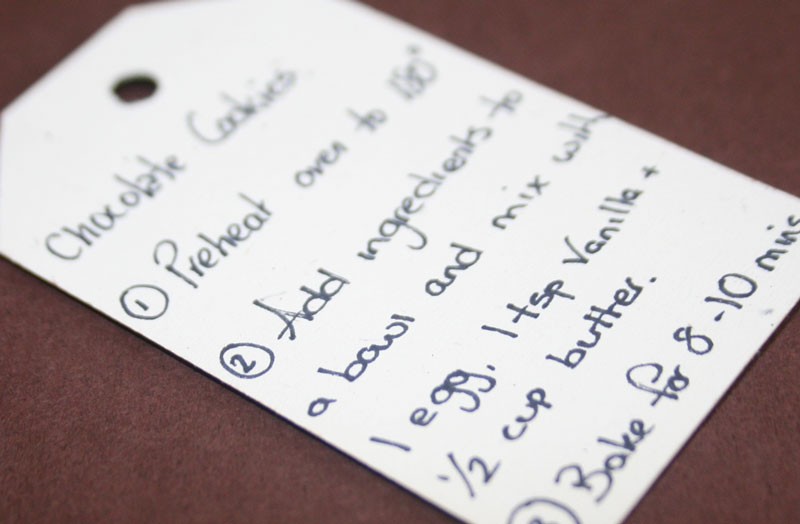 Chocolate Cookies
① Preheat oven to 180°
② Add ingredients to
a bowl and mix with
1 egg, 1 tsp Vanilla +
1/2 cup butter.
③ Bake for 8-10 mins